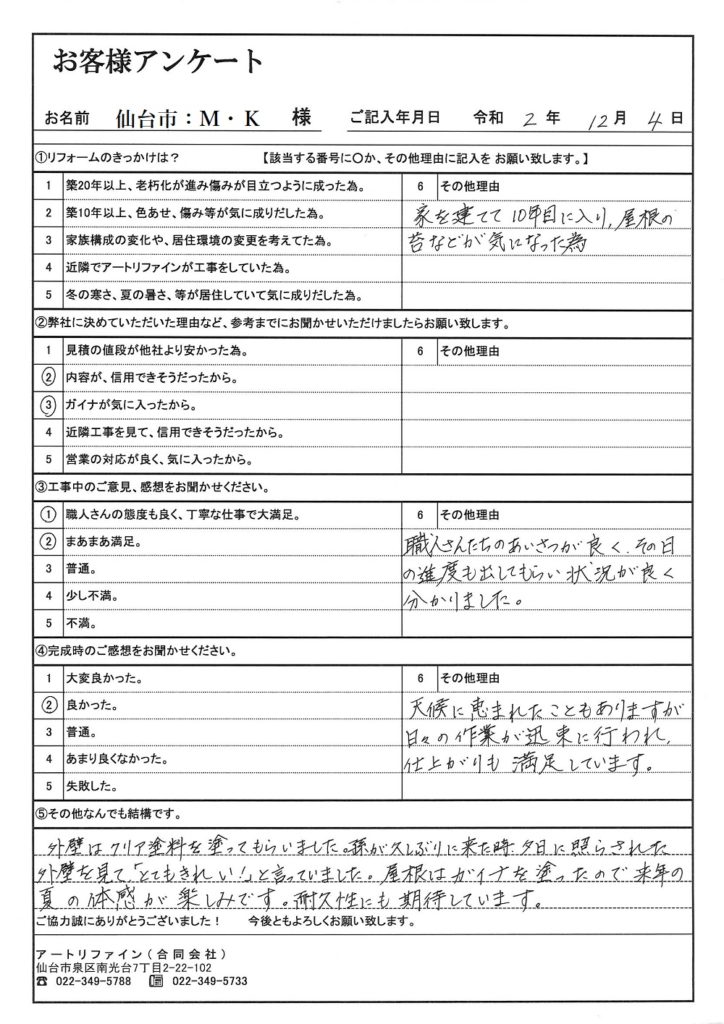 お客様アンケート
お名前 仙台市：M・K 様 ご記入年月日 令和 2 年 12 月 4 日
①リフォームのきっかけは？ 【該当する番号に〇か、その他理由に記入を お願い致します。】
1 築20年以上、老朽化が進み傷みが目立つように成った為。 6 その他理由
2 築10年以上、色あせ、傷み等が気に成りだした為。 家を建てて10年目に入り、屋根の
3 家族構成の変化や、居住環境の変更を考えてた為。 苔などが気になった為
4 近隣でアートリファインが工事をしていた為。
5 冬の寒さ、夏の暑さ、等が居住していて気に成りだした為。
②弊社に決めていただいた理由など、参考までにお聞かせいただけましたらお願い致します。
1 見積の値段が他社より安かった為。 6 その他理由
② 内容が、信用できそうだったから。
③ ガイナが気に入ったから。
4 近隣工事を見て、信用できそうだったから。
5 営業の対応が良く、気に入ったから。
③工事中のご意見、感想をお聞かせください。
① 職人さんの態度も良く、丁寧な仕事で大満足。 6 その他理由
② まあまあ満足。 職人さんたちのあいさつが良く、その日
3 普通。 の進度も出してもらい状況が良く
4 少し不満。 分かりました。
5 不満。
④完成時のご感想をお聞かせください。
1 大変良かった。 6 その他理由
② 良かった。 天候に恵まれたこともありますが
3 普通。 日々の作業が迅束に行われ、
4 あまり良くなかった。 仕上がりも満足しています。
5 失敗した。
⑤その他なんでも結構です。
外壁はクリア塗料を塗ってもらいました。孫が久しぶりに来た時、夕日に照らされた
外壁を見て「とてもきれい！」と言っていました。屋根はガイナを塗ったので来年の
夏の体感が楽しみです。耐久性にも期待しています。
ご協力誠にありがとうございました！ 今後ともよろしくお願い致します。
アートリファイン（合同会社）
仙台市泉区南光台7丁目2-22-102
☎ 022-349-5788 📠 022-349-5733